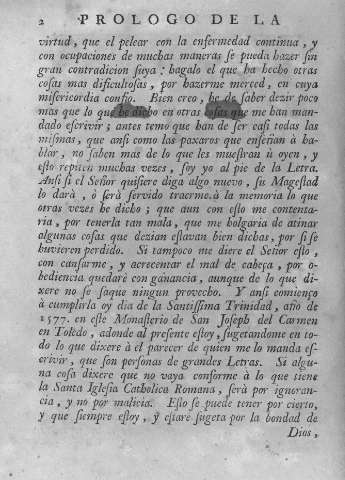 2 PROLOGO DE LA
virtud, que el pelear con la enfermedad continua, y
con ocupaciones de muchas maneras se pueda hazer sin
gran contradicion suya: hagalo el que ha hecho otras
cosas mas dificultosas, por hazerme merced, en cuya
misericordia confio. Bien creo, he de saber dezir poco
mas que lo que he dicho en otras cosas que me han man-
dado escrivir; antes temo que han de ser casi todas las
mismas, que ansi como las paxaros que enseñan à ha-
blar, no saben mas de lo que les muestran ù oyen, y
esto repiten muchas vezes, soy yo al pie de la Letra.
Ansi si el Señor quisiere diga algo nuevo, su Magestad
lo darà, ò serà servido traerme à la memoria lo que
otras vezes he dicho; que aun con esto me contenta-
ria, por tenerla tan mala, que me holgaria de atinar
algunas cosas que dezian estavan bien dichas, por si se
huvieren perdido. Si tampoco me diere el Señor esto,
con cansarme, y acrecentar el mal de cabeça, por o-
bediencia quedarè con ganancia, aunque de lo que di-
xere no se saque ningun provecho. Y ansi comienço
à cumplirla oy dia de la Santissima Trinidad, año de
1577. en este Monasterio de San Joseph del Carmen
en Toledo, adonde al presente estoy, sugetandome en to-
do lo que dixere à el parecer de quien me lo manda es-
crivir, que son personas de grandes Letras. Si algu-
na cosa dixere que no vaya conforme à lo que tiene
la Santa Iglesia Catholica Romana, serà por ignoran-
cia, y no por malicia. Esto se puede tener por cierto,
y que siempre estoy, y estarè sugeta por la bondad de
Dios,